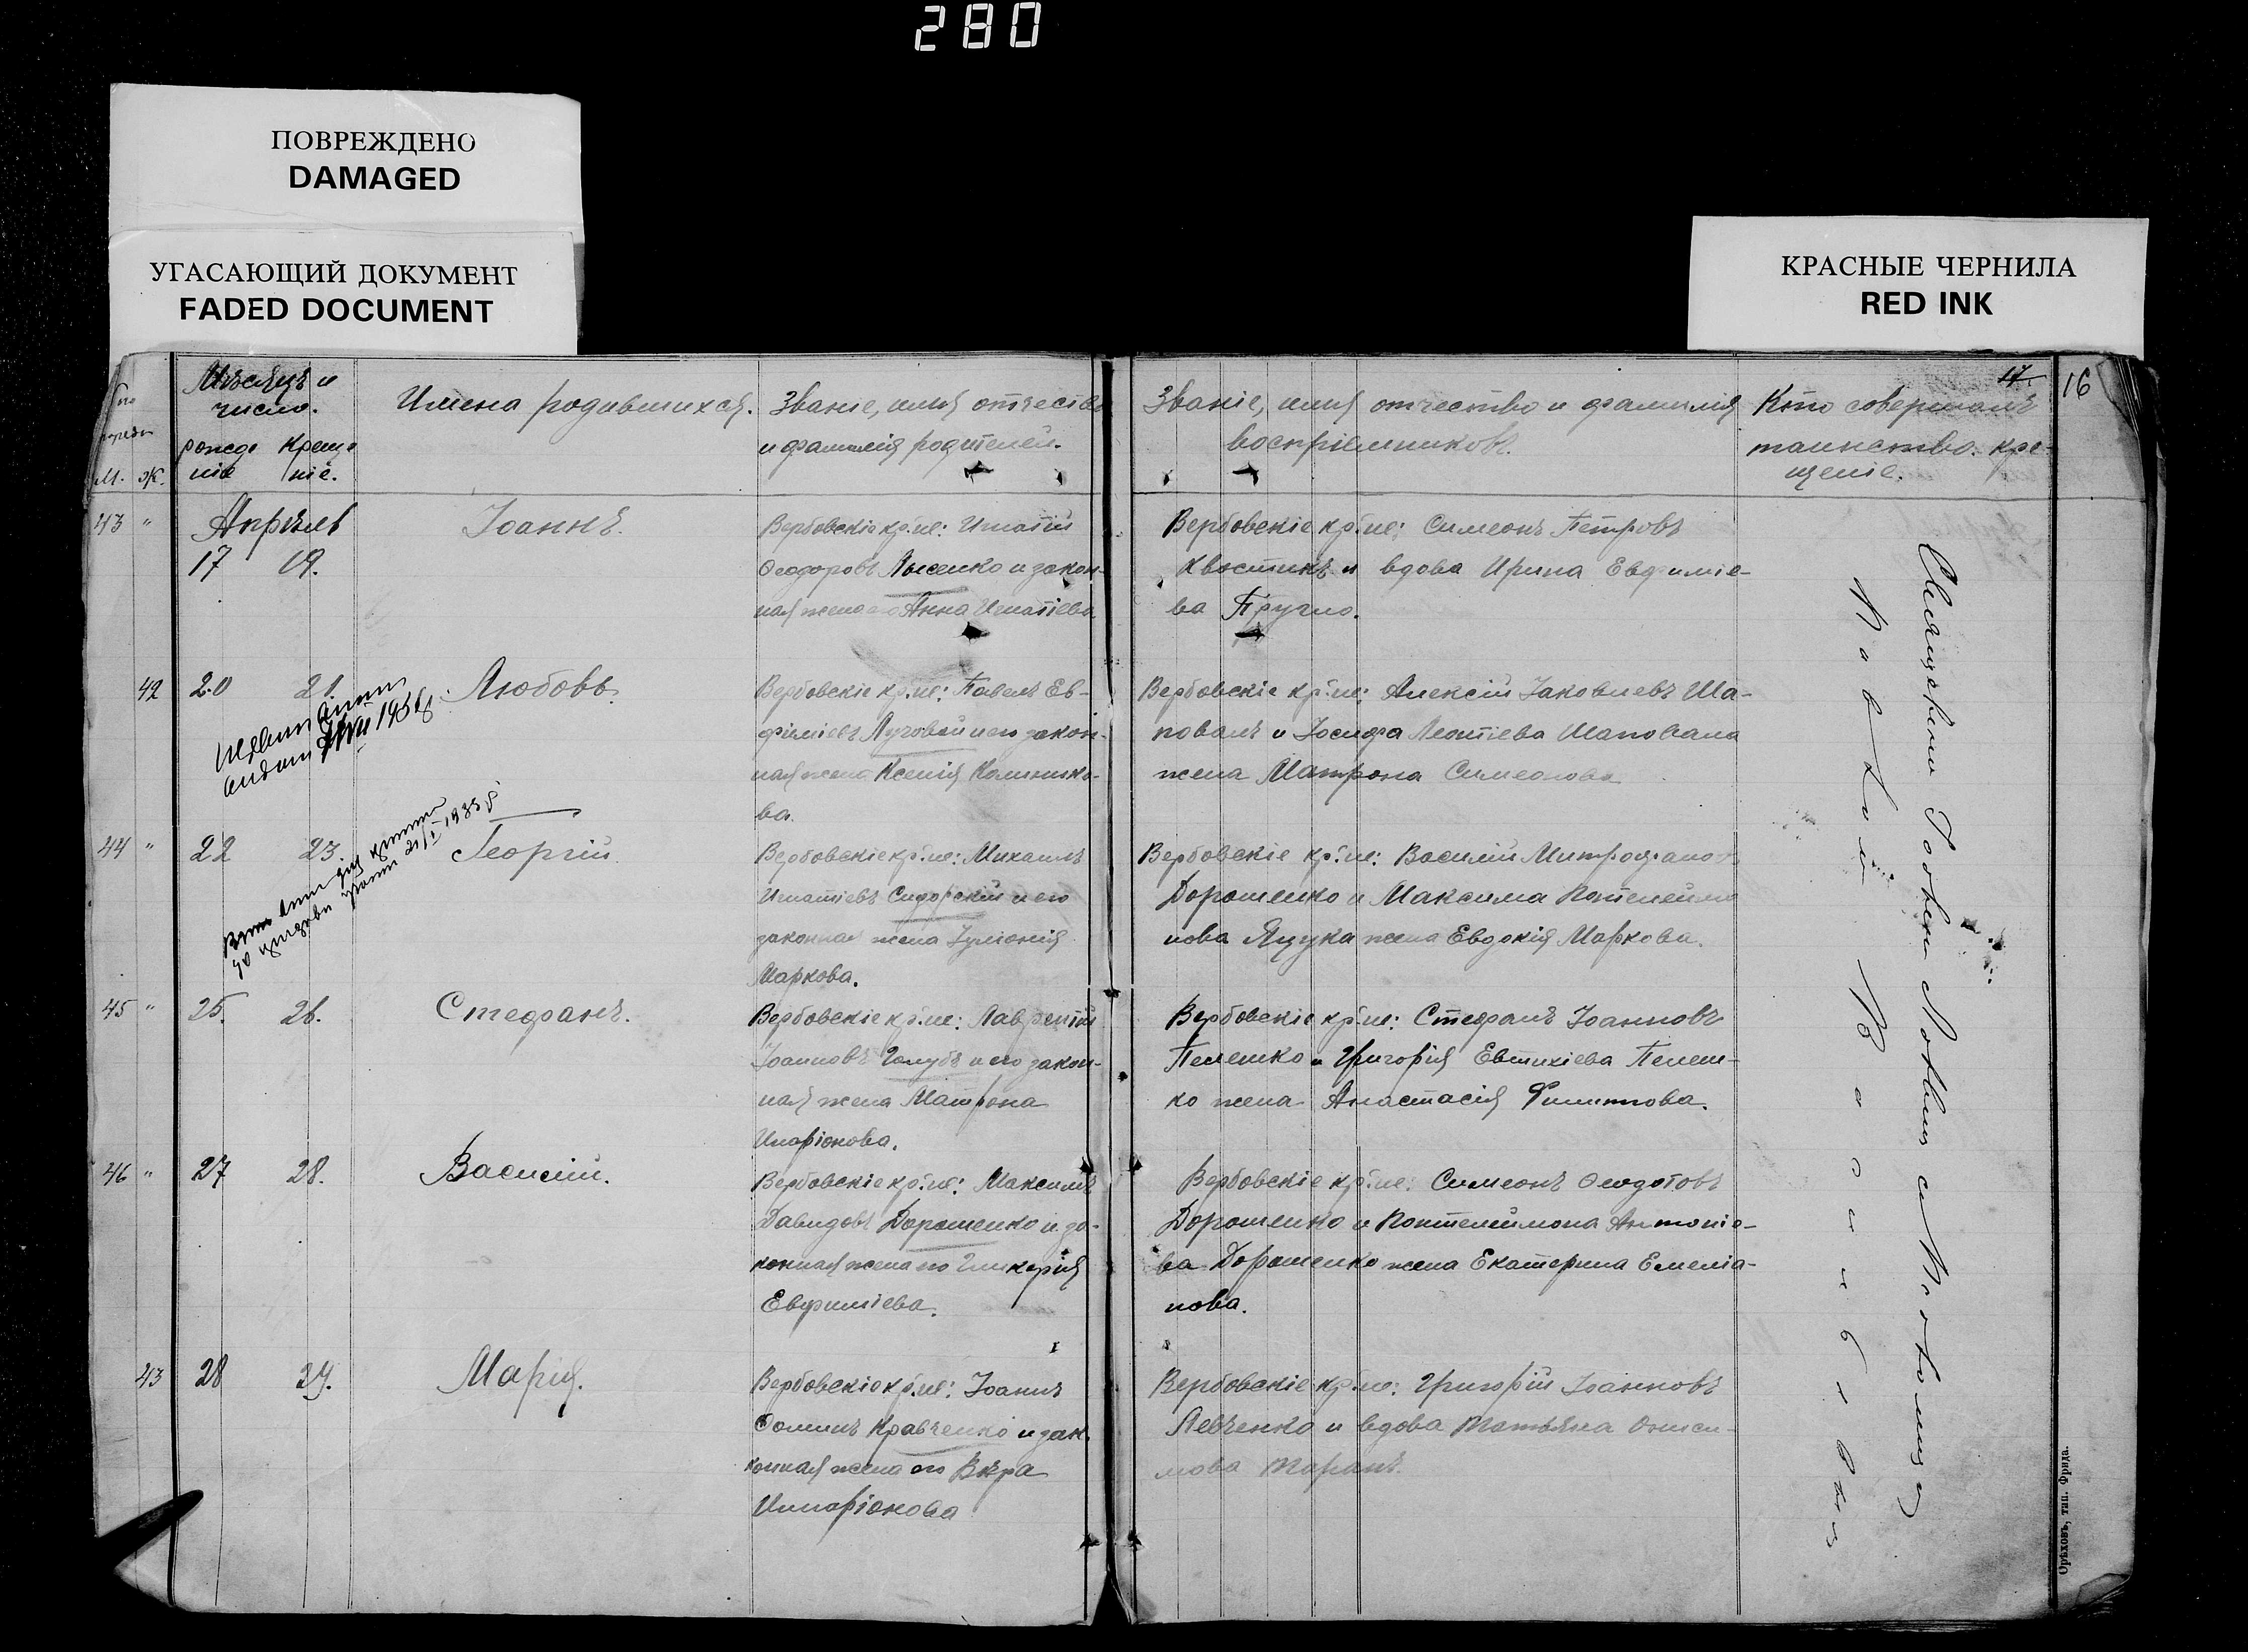 280
ПОВРЕЖДЕНО
DAMAGED
УГАСАЮЩИЙ ДОКУМЕНТ
FADED DOCUMENT
КРАСНЫЕ ЧЕРНИЛА
RED INK
17
16
Мѣсяцъ и
число.
рожде Креще
нiе нiе.
М. Ж.
Имена родившихся.
Званiе, имя отчество
и фамилiя родителей.
Званiе, имя отчество и фамилiя
воспрiемниковъ.
Кто совершалъ
таинство кре-
щенiе.
43 "
Апрѣль
17 19.
Iоаннъ.
Вербовскiе кр.не: Игнатiй
Ѳеодоровъ Лысенко и закон-
ная жена его Анна Игнатiева
Вербовскiе кр.не: Симеонъ Петровъ
Хвостикъ и вдова Ирина Евфимiе-
ва
42
20 21.
Любовь.
Вербовскiе кр.не: Павелъ Ев-
фимiевъ Луговой и его закон-
ная жена Ксенiя Калинико-
ва.
Вербовскiе кр.не: Алексiй Iаковлевъ Ша-
повалъ и Iосифа Леонтiева Шаповала
жена Матрона Симеонова
44 "
22 23
Георгiй.
Вербовскiе кр.не: Михаилъ
Игнатiевъ Сидорскiй и его
законная жена Iулiанiя
Маркова.
Вербовскiе кр.не: Василiй Митрофановъ
Дорошенко и Максима Пантелеимо
нова Яцука жена Евдокiя Маркова.
45 "
25. 26.
Стефанъ.
Вербовскiе кр.не: Лаврентiй
Iоанновъ Голубъ и его закон-
ная жена Матрона
Иларiонова.
Вербовскiе кр.не: Стефанъ Iоанновъ
Пелешко и Григорiя Евтихiева Пелеш-
ко жена Анастасiя Филиппова.
46 "
27 28.
Василiй.
Вербовскiе кр.не: Максимъ
Давидовъ Дорошенко и за-
конная жена его Гликерiя
Евфимiева.
Вербовскiе кр.не: Симеонъ Ѳеодотовъ
Дорошенко и Пантелеимона Антонiе-
ва Дорошенко жена Екатерина Емелiа-
нова.
43
28 29.
Марiя.
Вербовскiе кр.не: Iоаннъ
Ѳоминъ Кравченко и зак.
конная жена его Вѣра
Иларiонова
Вербовскiе кр.не: Григорiй Iоанновъ
Левченко и вдова Татьяна Ониси-
мова Таранъ.
Орѣховъ, тип. Фрида.